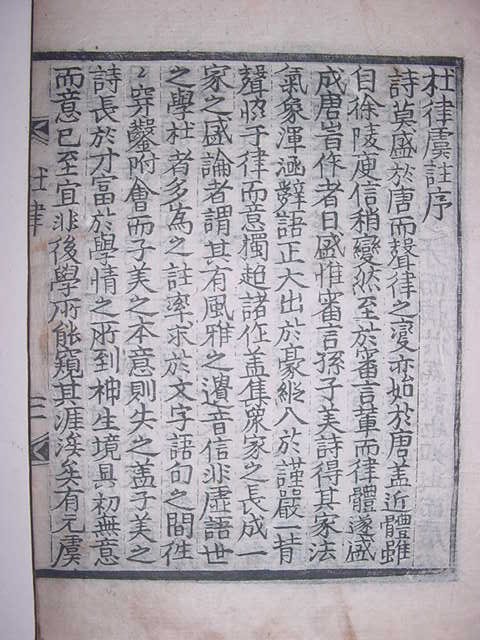 杜律虞註序
詩莫盛於唐而聲律之變亦始於唐盖近體雖
自徐陵庾信稍變然至於審言輩而律體遂盛
成唐旨作者日盛惟審言孫子美詩得其家法
氣象渾涵辭語正大出於豪縱入於謹嚴一昔
聲恊于律而意獨超諸作盖集衆家之長成一
家之盛論者謂其有風雅之遺音信非虛語世
之學杜者多為之註率求於文字語句之間徃
〻穿鑿附會而子美之本意則失之盖子美之
詩長於才富於學情之所到神生境具初無意
而意已至宜非後學所能窺其涯涘矣有元虞
杜律